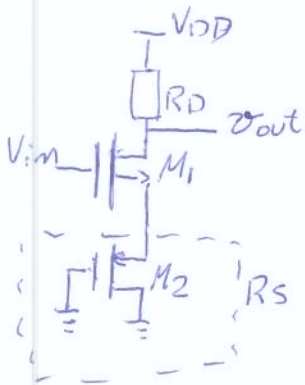 VDD
RD
vout
Vin
M1
M2
RS